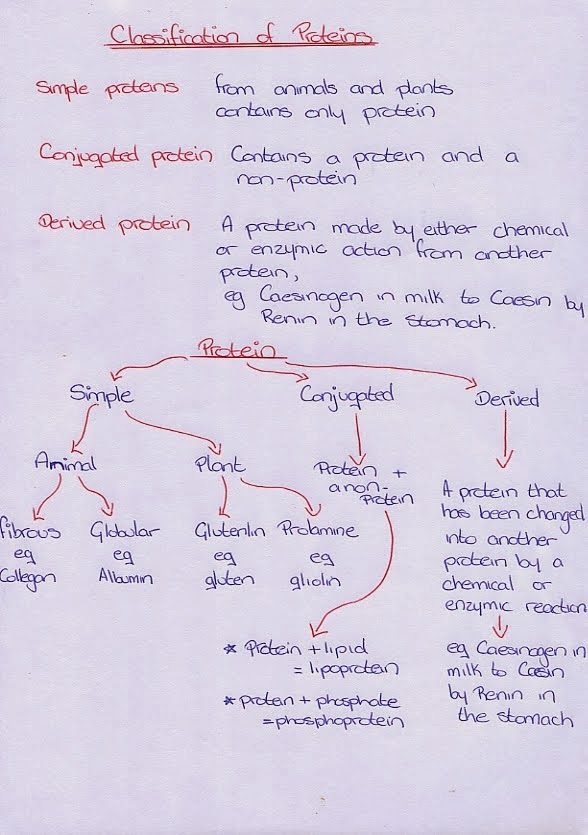 Classification of Proteins
Simple proteins from animals and plants
contains only protein
Conjugated protein Contains a protein and a
non-protein
Derived protein A protein made by either chemical
or enzymic action from another
protein,
eg Caesinogen in milk to Caesin by
Renin in the stomach.
Protein
Simple Conjugated Derived
Animal Plant
Protein +
a non-
Protein
fibrous Globular Glutenlin Prolamine
eg eg eg eg
Collegon Albumin gluten gliolin
A protein that
has been changed
into another
protein by a
chemical or
enzymic reaction
* Protein + lipid
= lipoprotein
* protein + phosphate
= phosphoprotein
eg Caesinogen in
milk to Caesin
by Renin in
the stomach